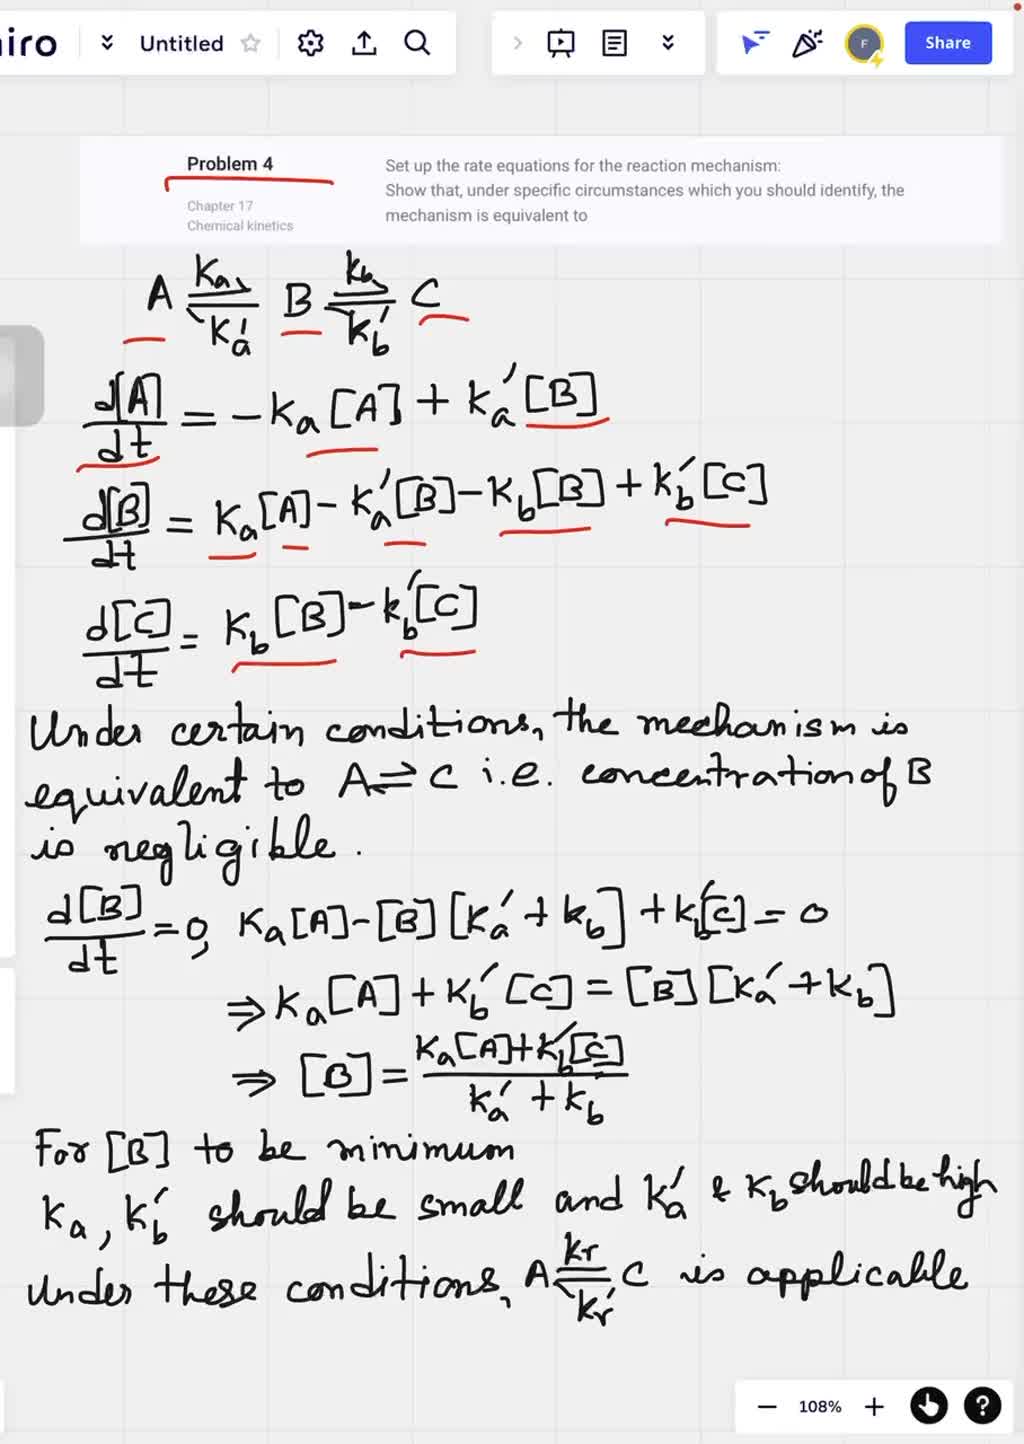 iro
Untitled
Share
F
Problem 4
Chapter 17
Chemical kinetics
Set up the rate equations for the reaction mechanism:
Show that, under specific circumstances which you should identify, the
mechanism is equivalent to
A ka⇌ka' B kb⇌kb' C
d[A]/dt = -ka[A] + ka'[B]
d[B]/dt = ka[A] - ka'[B] - kb[B] + kb'[C]
d[C]/dt = kb[B] - kb'[C]
Under certain conditions, the mechanism is
equivalent to A ⇌ C i.e. concentration of B
is negligible.
d[B]/dt = 0, ka[A] - [B][ka' + kb] + kb'[C] = 0
⇒ ka[A] + kb'[C] = [B][ka' + kb]
⇒ [B] = ka[A] + kb'[C] / ka' + kb
For [B] to be minimum
ka, kb' should be small and ka' & kb should be high
Under these conditions, A kr⇌kr' C is applicable
108%